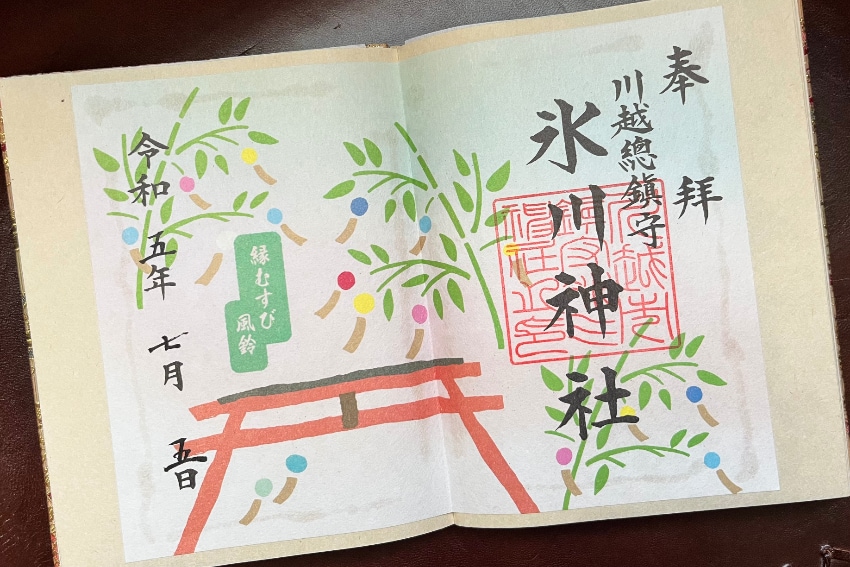 奉拝
川越總鎮守
氷川神社
縁むすび
風鈴
令和五年七月五日